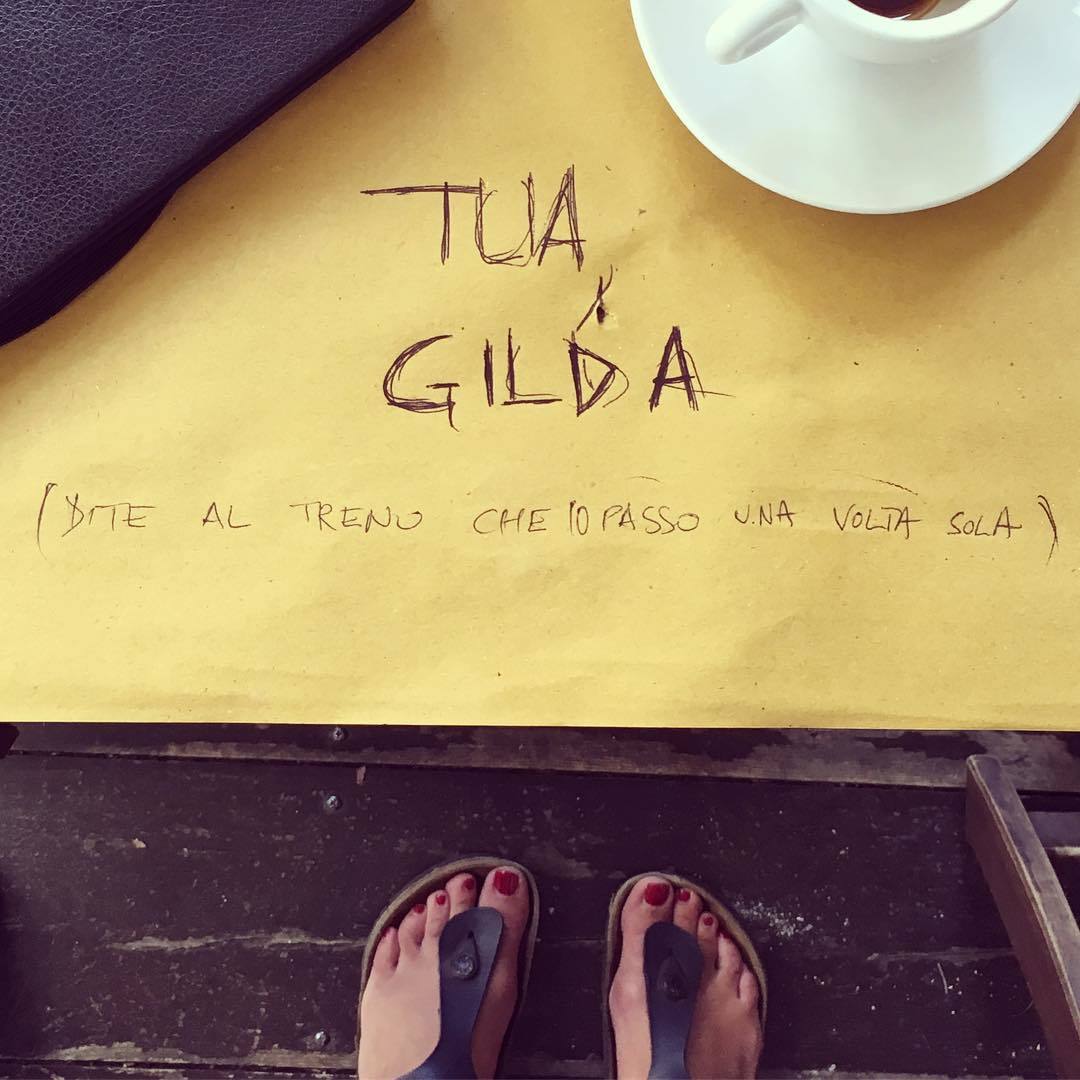 TUA,
GILDA
(DITE AL TRENO CHE IO PASSO UNA VOLTA SOLA)